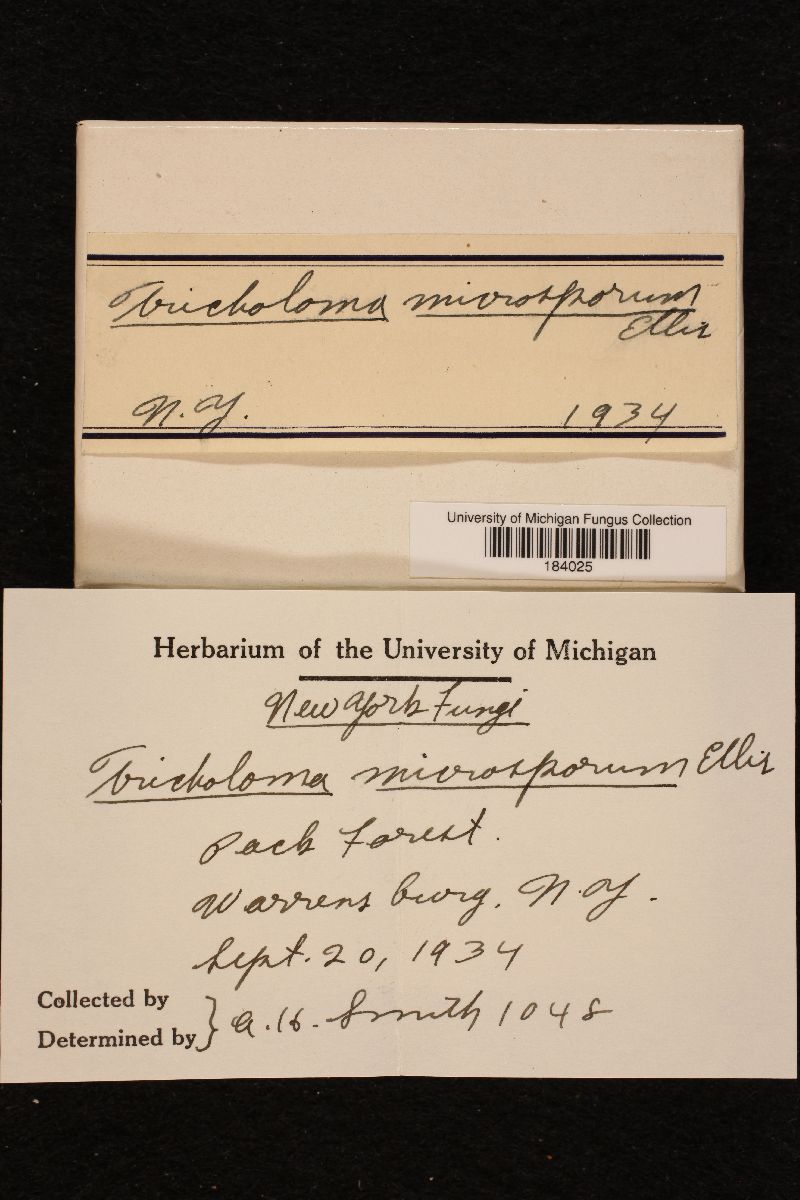 Tricholoma microsporum
Ellis
N.Y. 1934
University of Michigan Fungus Collection
184025
Herbarium of the University of Michigan
New York Fungi
Tricholoma microsporum Ellis
Pack Forest.
Warrensburg, N.Y.
Sept. 20, 1934
Collected by
Determined by } A.H. Smith 1048